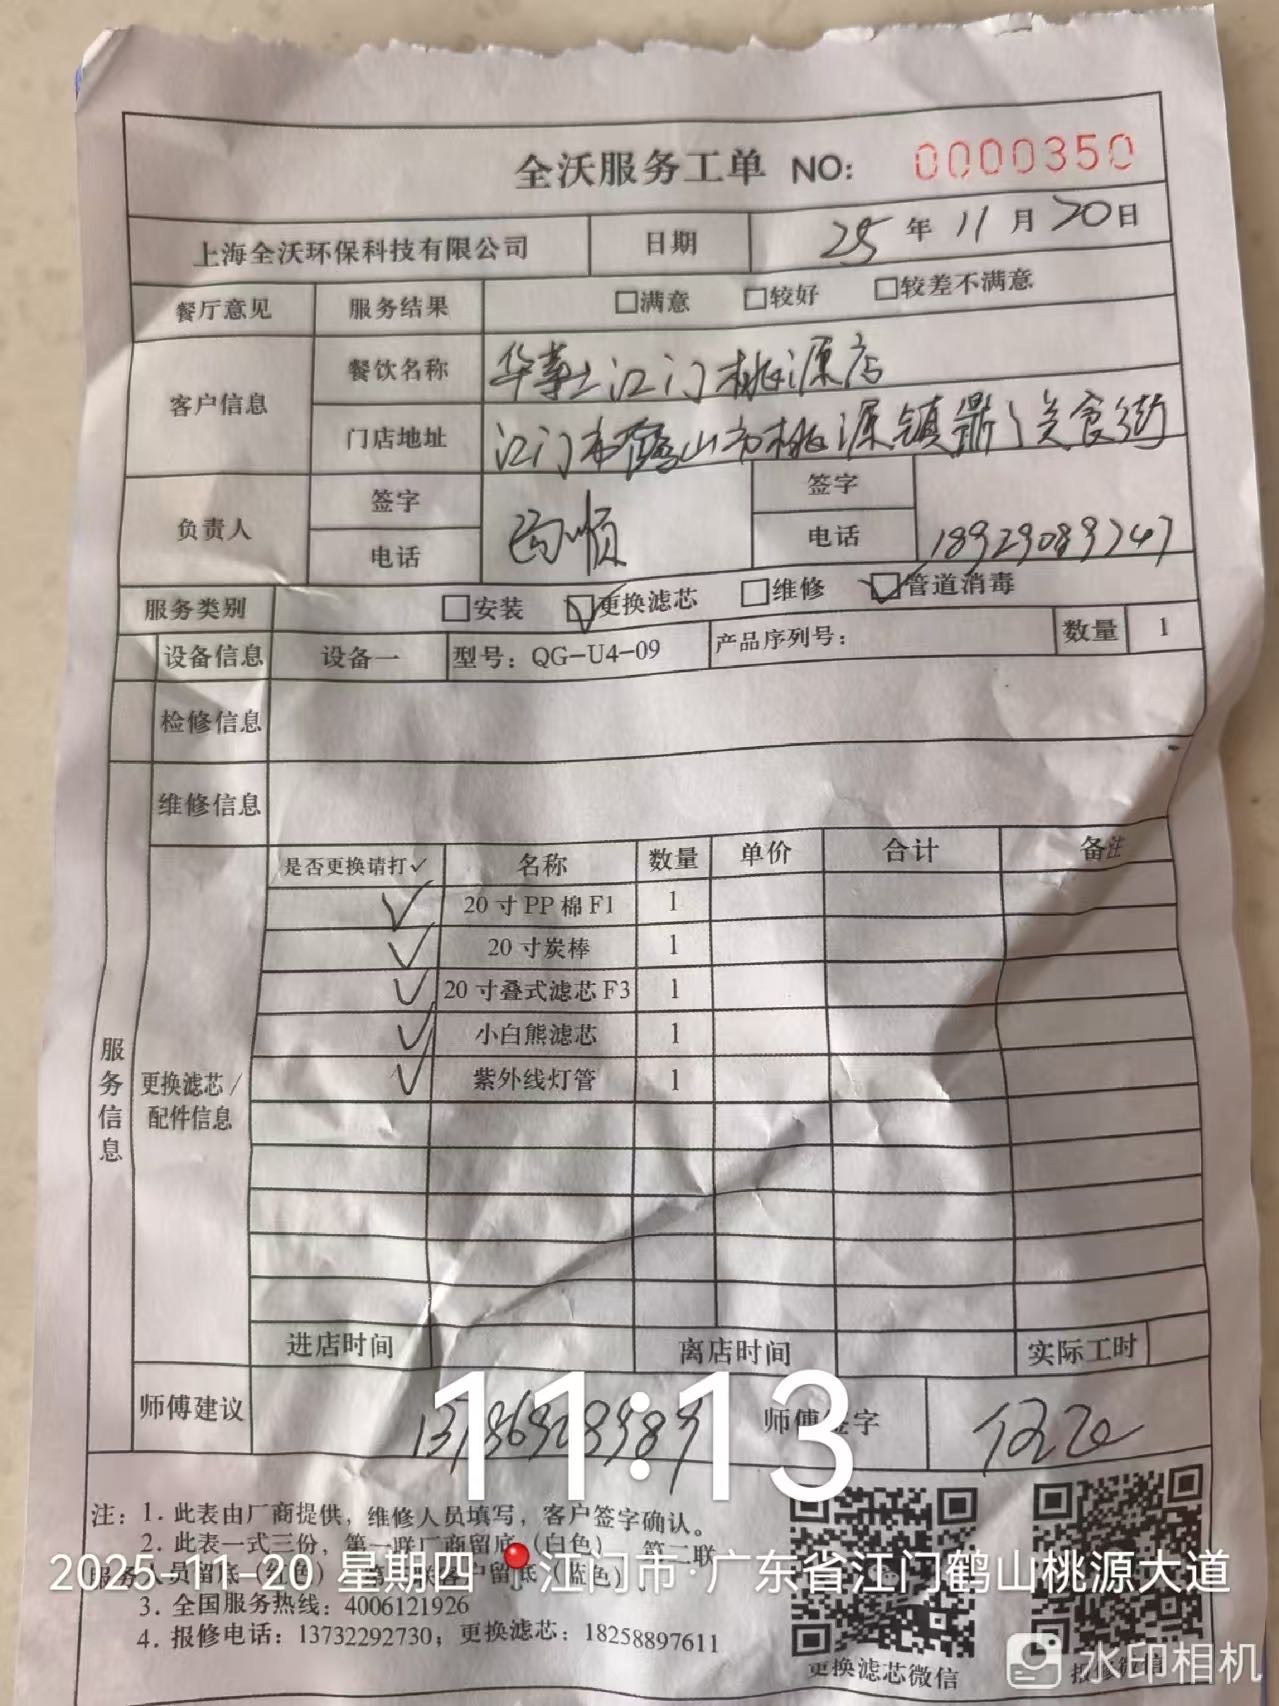 全沃服务工单 NO: 0000350
上海全沃环保科技有限公司 日期 25年11月20日
餐厅意见 服务结果 □满意 □较好 □较差不满意
客户信息 餐饮名称 华莱士江门桃源店
门店地址 江门市鹤山市桃源镇鼎 美食街
负责人 签字 签字
电话 顺 电话 18929089747
服务类别 □安装 ☑更换滤芯 □维修 ☑管道消毒
设备信息 设备一 型号：QG-U4-09 产品序列号： 数量 1
检修信息
维修信息
是否更换请打✓ 名称 数量 单价 合计 备注
✓ 20寸PP棉F1 1
✓ 20寸炭棒 1
✓ 20寸叠式滤芯F3 1
✓ 小白熊滤芯 1
✓ 紫外线灯管 1
服务信息
更换滤芯/
配件信息
进店时间 离店时间 实际工时
师傅建议 师傅签字
11:13
注：1. 此表由厂商提供，维修人员填写，客户签字确认。
2. 此表一式三份，第一联厂商留底（白色） 第二联
服务人员留底（红色） 第三联客户留底（蓝色）
2025-11-20 星期四 江门市·广东省江门鹤山桃源大道
3. 全国服务热线：4006121926
4. 报修电话：13732292730；更换滤芯：18258897611
更换滤芯微信 报修微信
水印相机